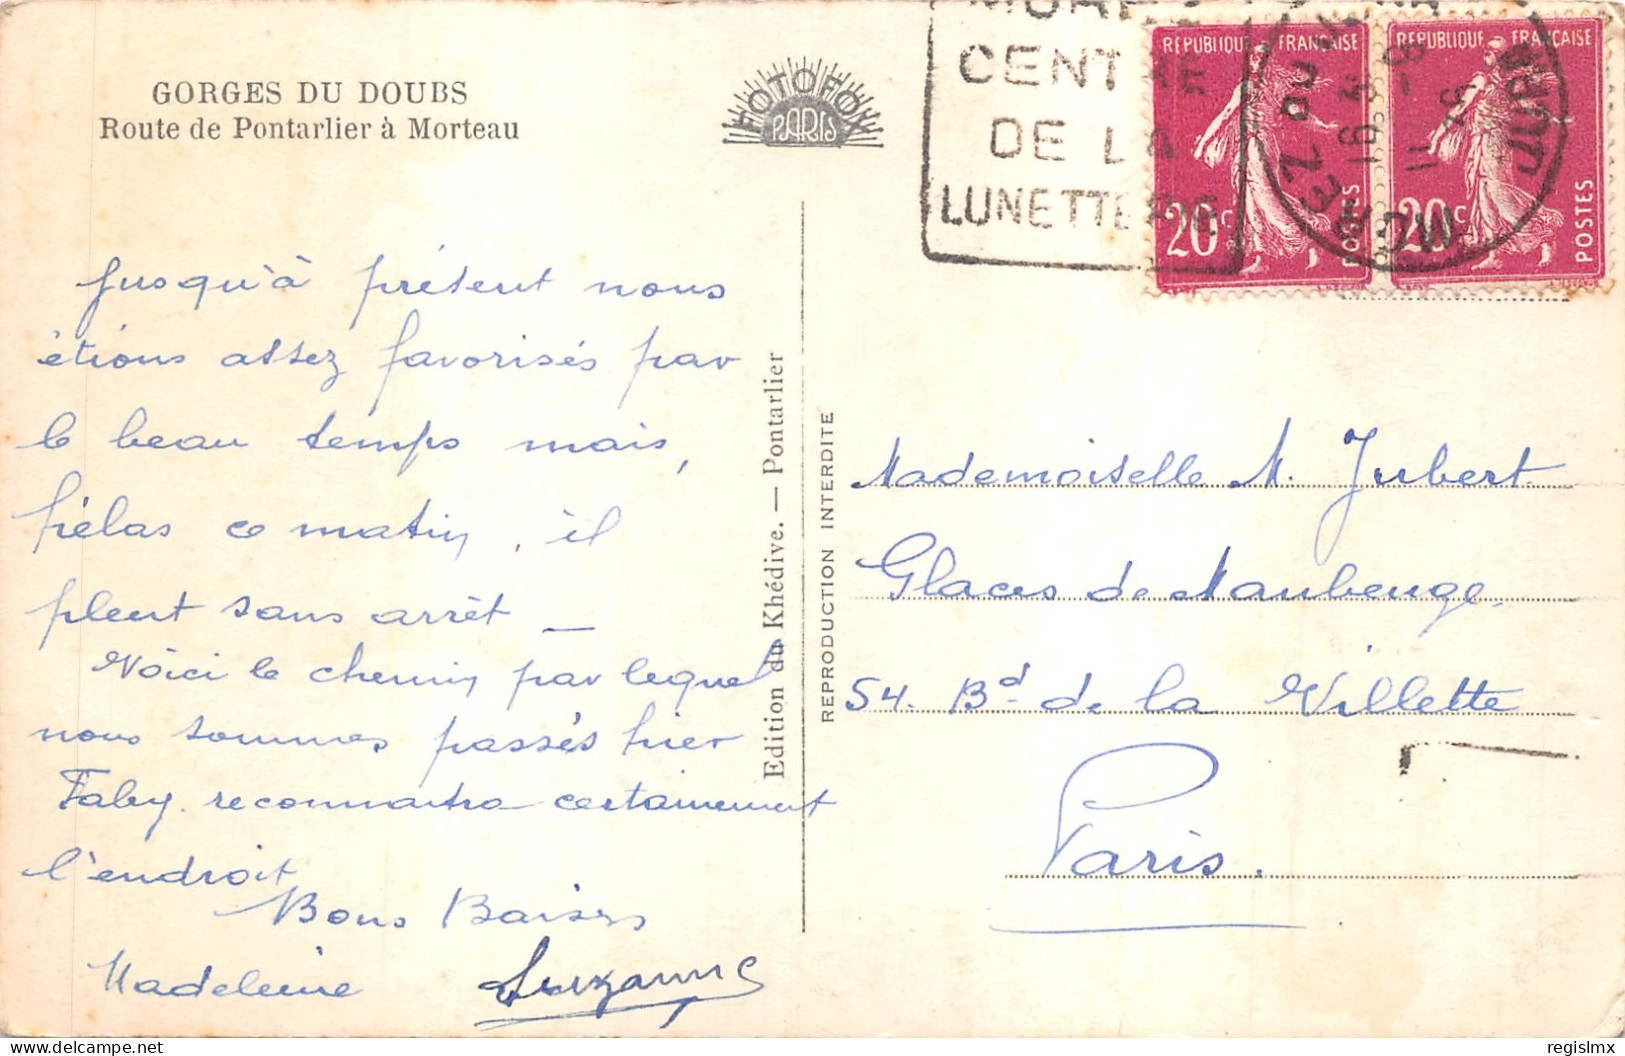 GORGES DU DOUBS
Route de Pontarlier à Morteau
FOTOFOX
PARIS
CENTRE
DE LA
LUNETTERIE
REPUBLIQUE FRANÇAISE
20c
POSTES
REPUBLIQUE FRANÇAISE
20c
POSTES
MOREZ DU JURA
Jusqu'à présent nous
étions assez favorisés par
le beau temps mais,
hélas ce matin, il
pleut sans arrêt —
Voici le chemin par lequel
nous sommes passés hier
Faby reconnaitra certainement
l'endroit
Bons Baisers
Madeleine Suzanne
Edition du Khédive. — Pontarlier
REPRODUCTION INTERDITE
Mademoiselle M. Jubert
Glaces de Maubeuge,
54. Bd de la Villette
Paris.
regislmx